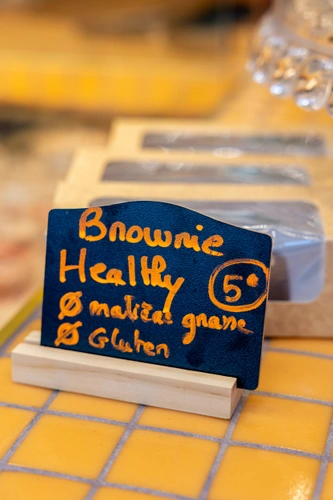 Brownie
Healthy 5€
Ø matière grasse
Ø Gluten